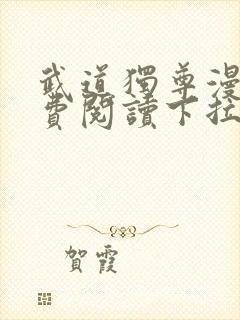 武道獨尊漫
費閱讀下拉
賀霞